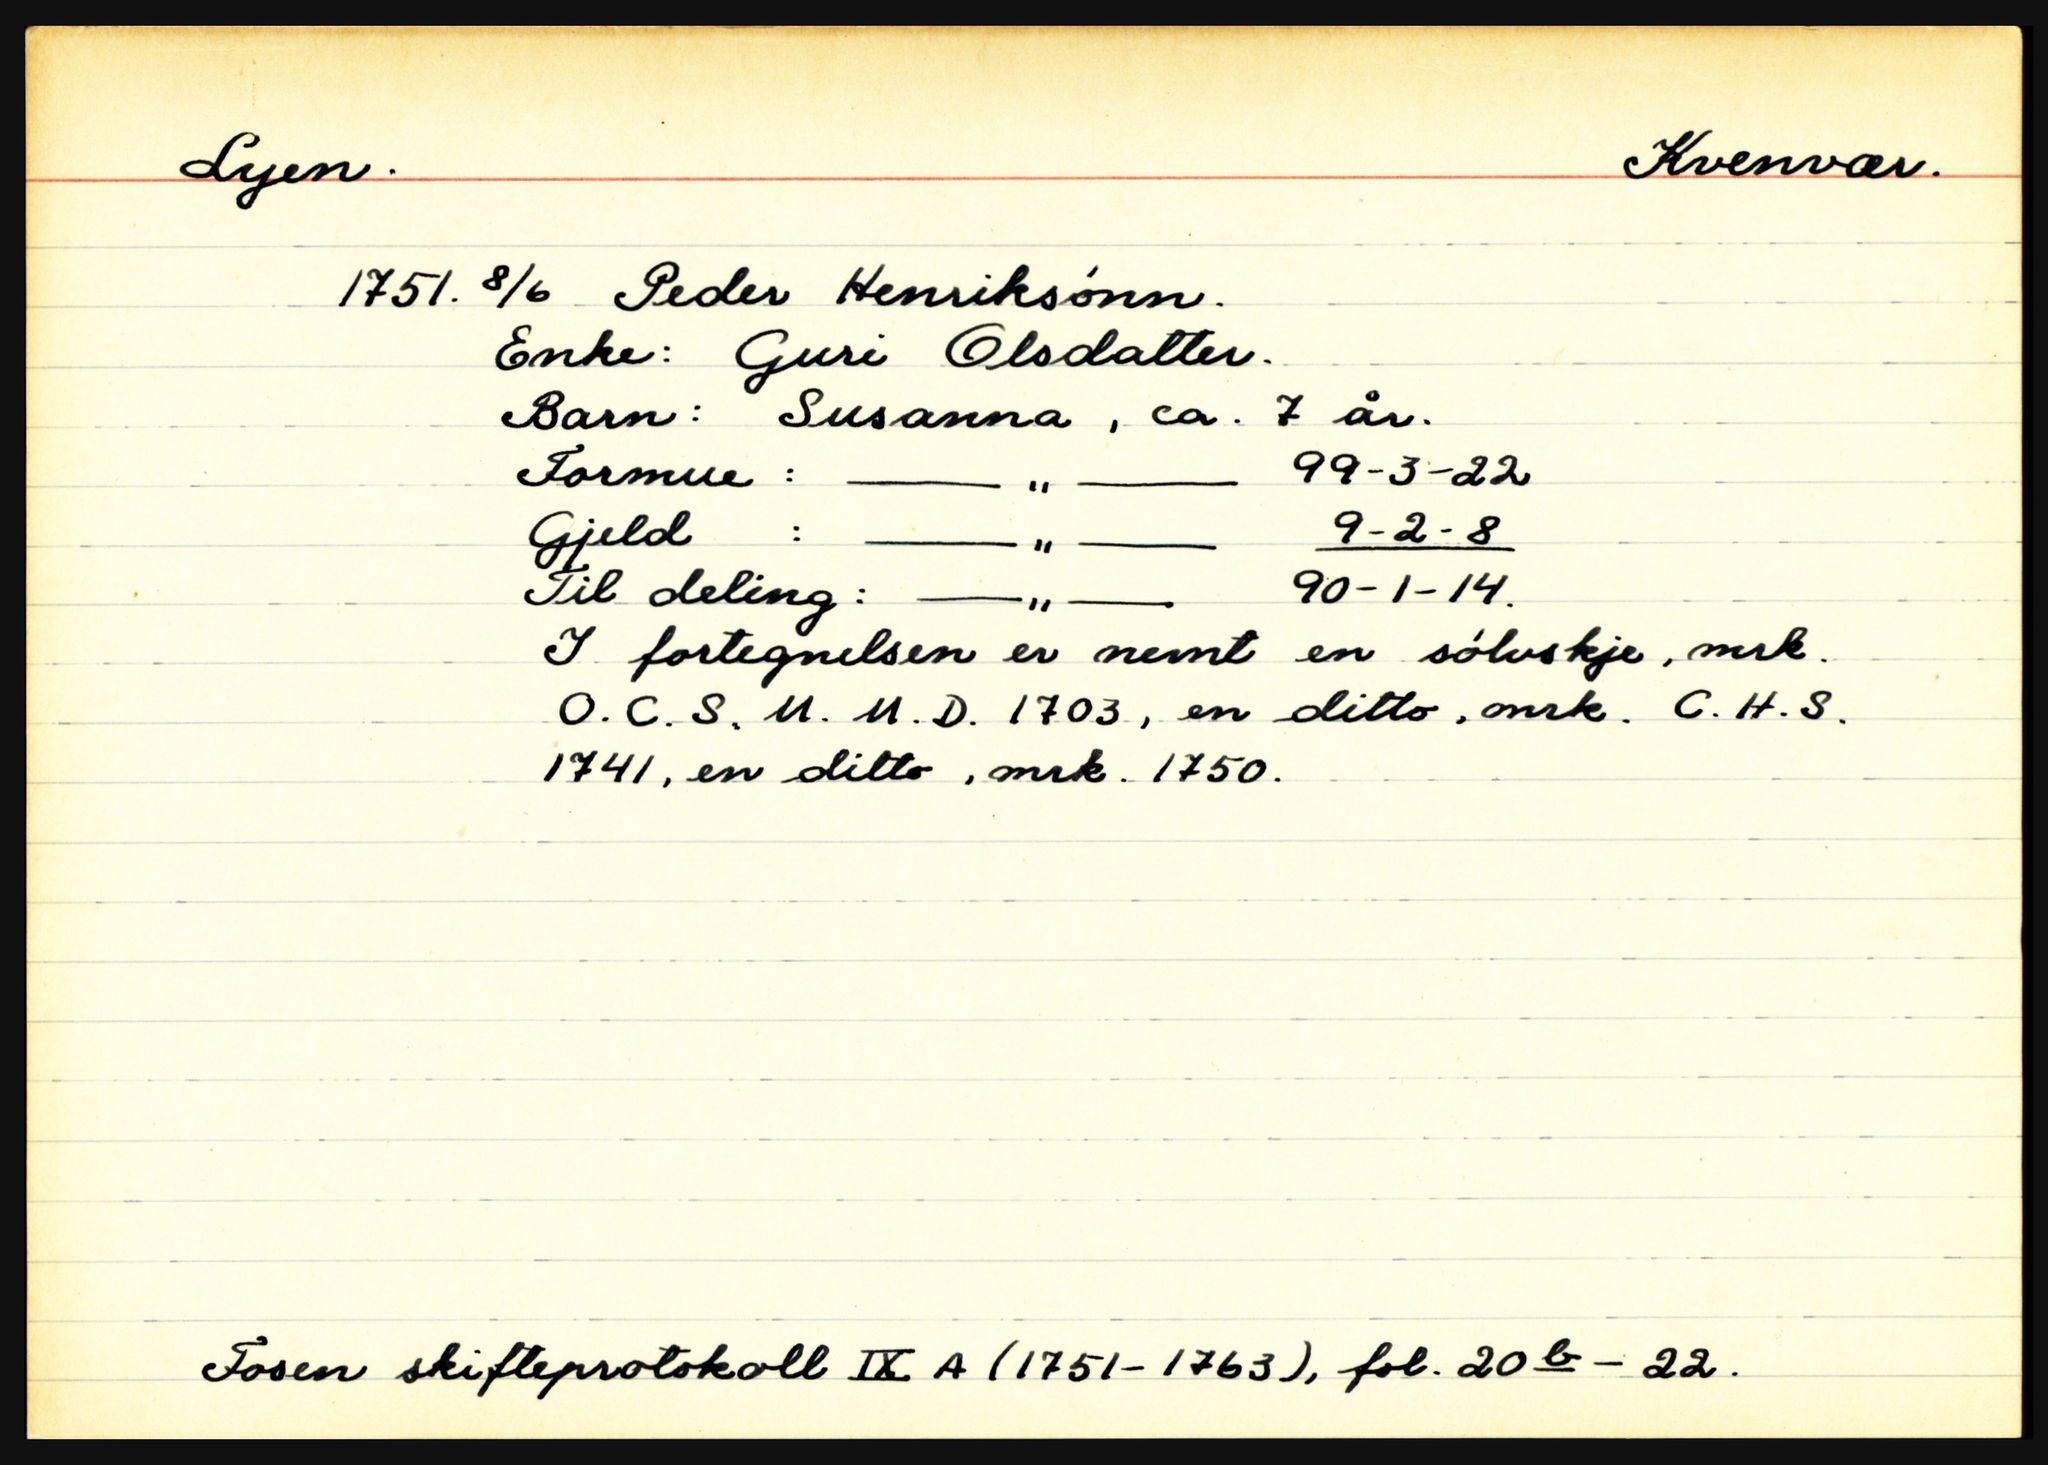 Lyen. Kvenvær.
1751. 8/6 Peder Henriksónn.
Enke: Guri Olsdatter.
Barn: Susanna, ca. 7 år.
Formue: —— " —— 99-3-22
Gjeld : —— " —— 9-2-8
Til deling: —— " —— 90-1-14.
I fortegnelsen er nemt en sólvskje, mrk.
O. C. S. M. M. D. 1703, en ditto, mrk. C. H. S.
1741, en ditto, mrk. 1750.
Fosen skifteprotokoll IX A (1751-1763), fol. 20 b - 22.